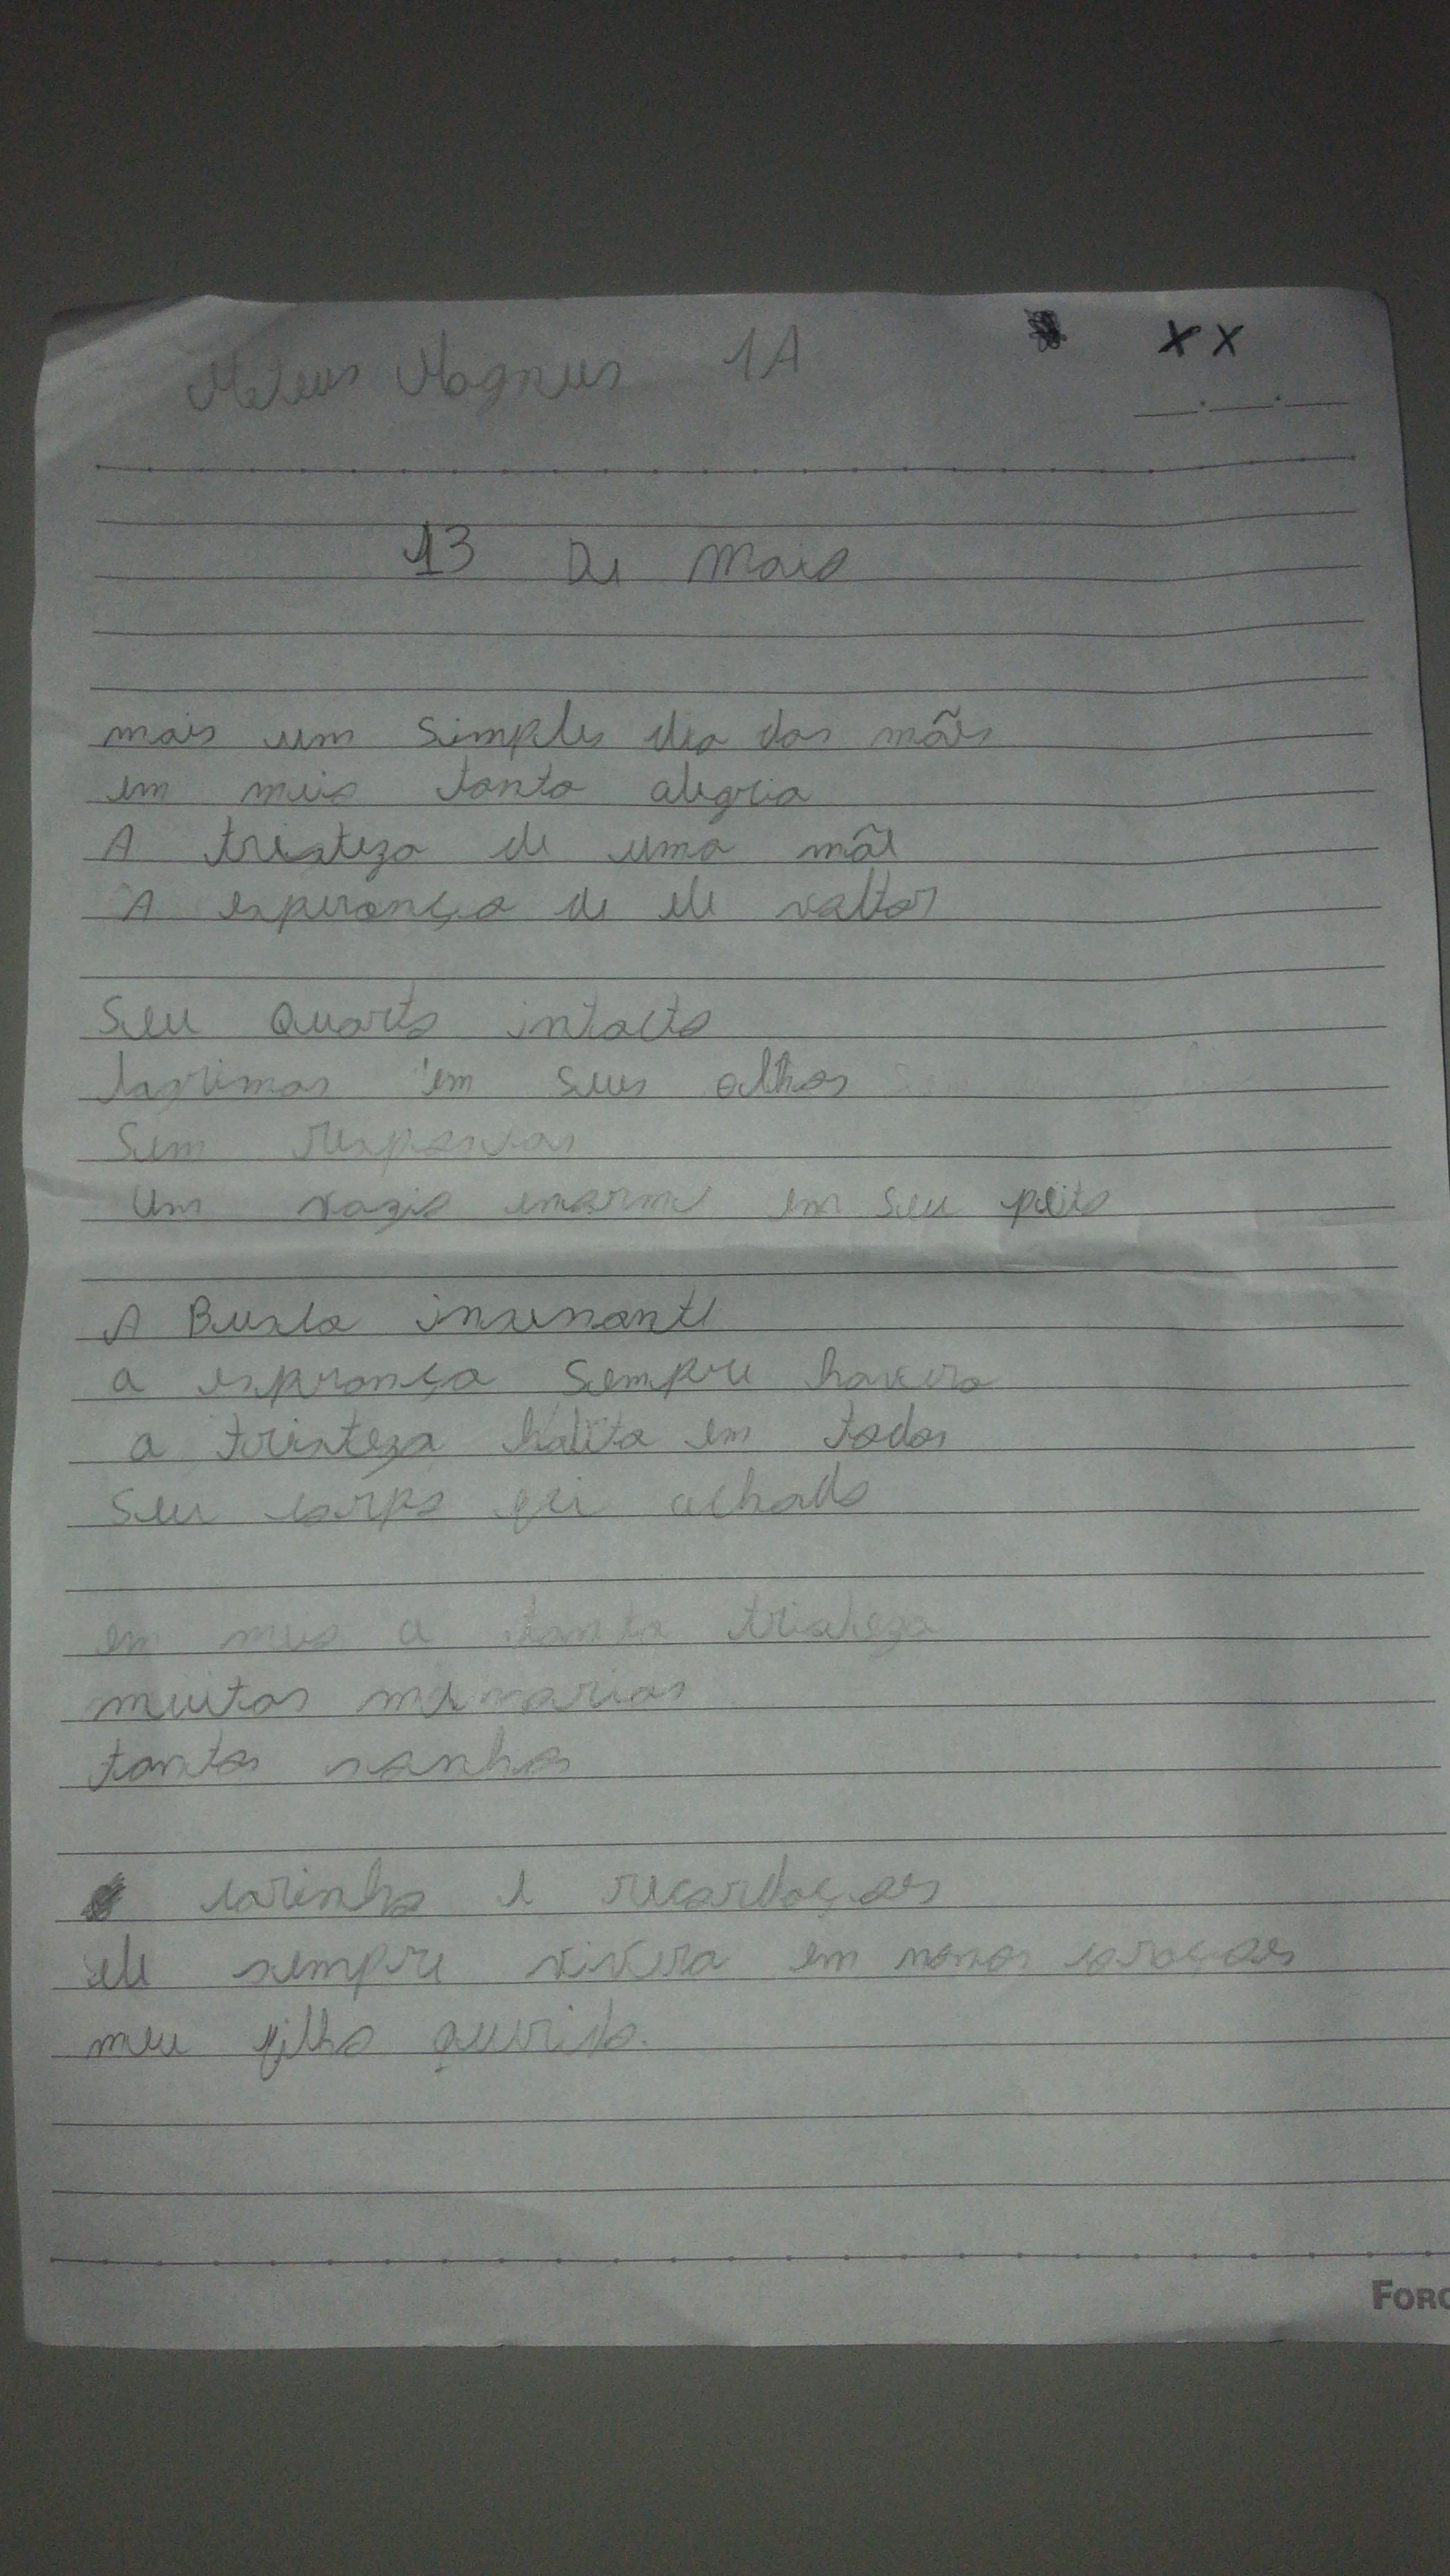 Mateus Magnus 1A
X X
13 De Maio
mais um simples dia das mães
em meio tanta alegria
A tristeza de uma mãe
A esperança de ele voltar
Seu Quarto intacto
lagrimas em seus olhos
Sem respostas
Um vazio enorme em seu peito
A Busca incenante
a esprança Sempre havera
a tristeza habita em todos
Seu corpo foi achado
em meio a tanta tristeza
muitas memorias
tantos sonhos
carinho e recordaçoes
ele sempre vivera em nossos coraçoes
meu filho querido.
FORO